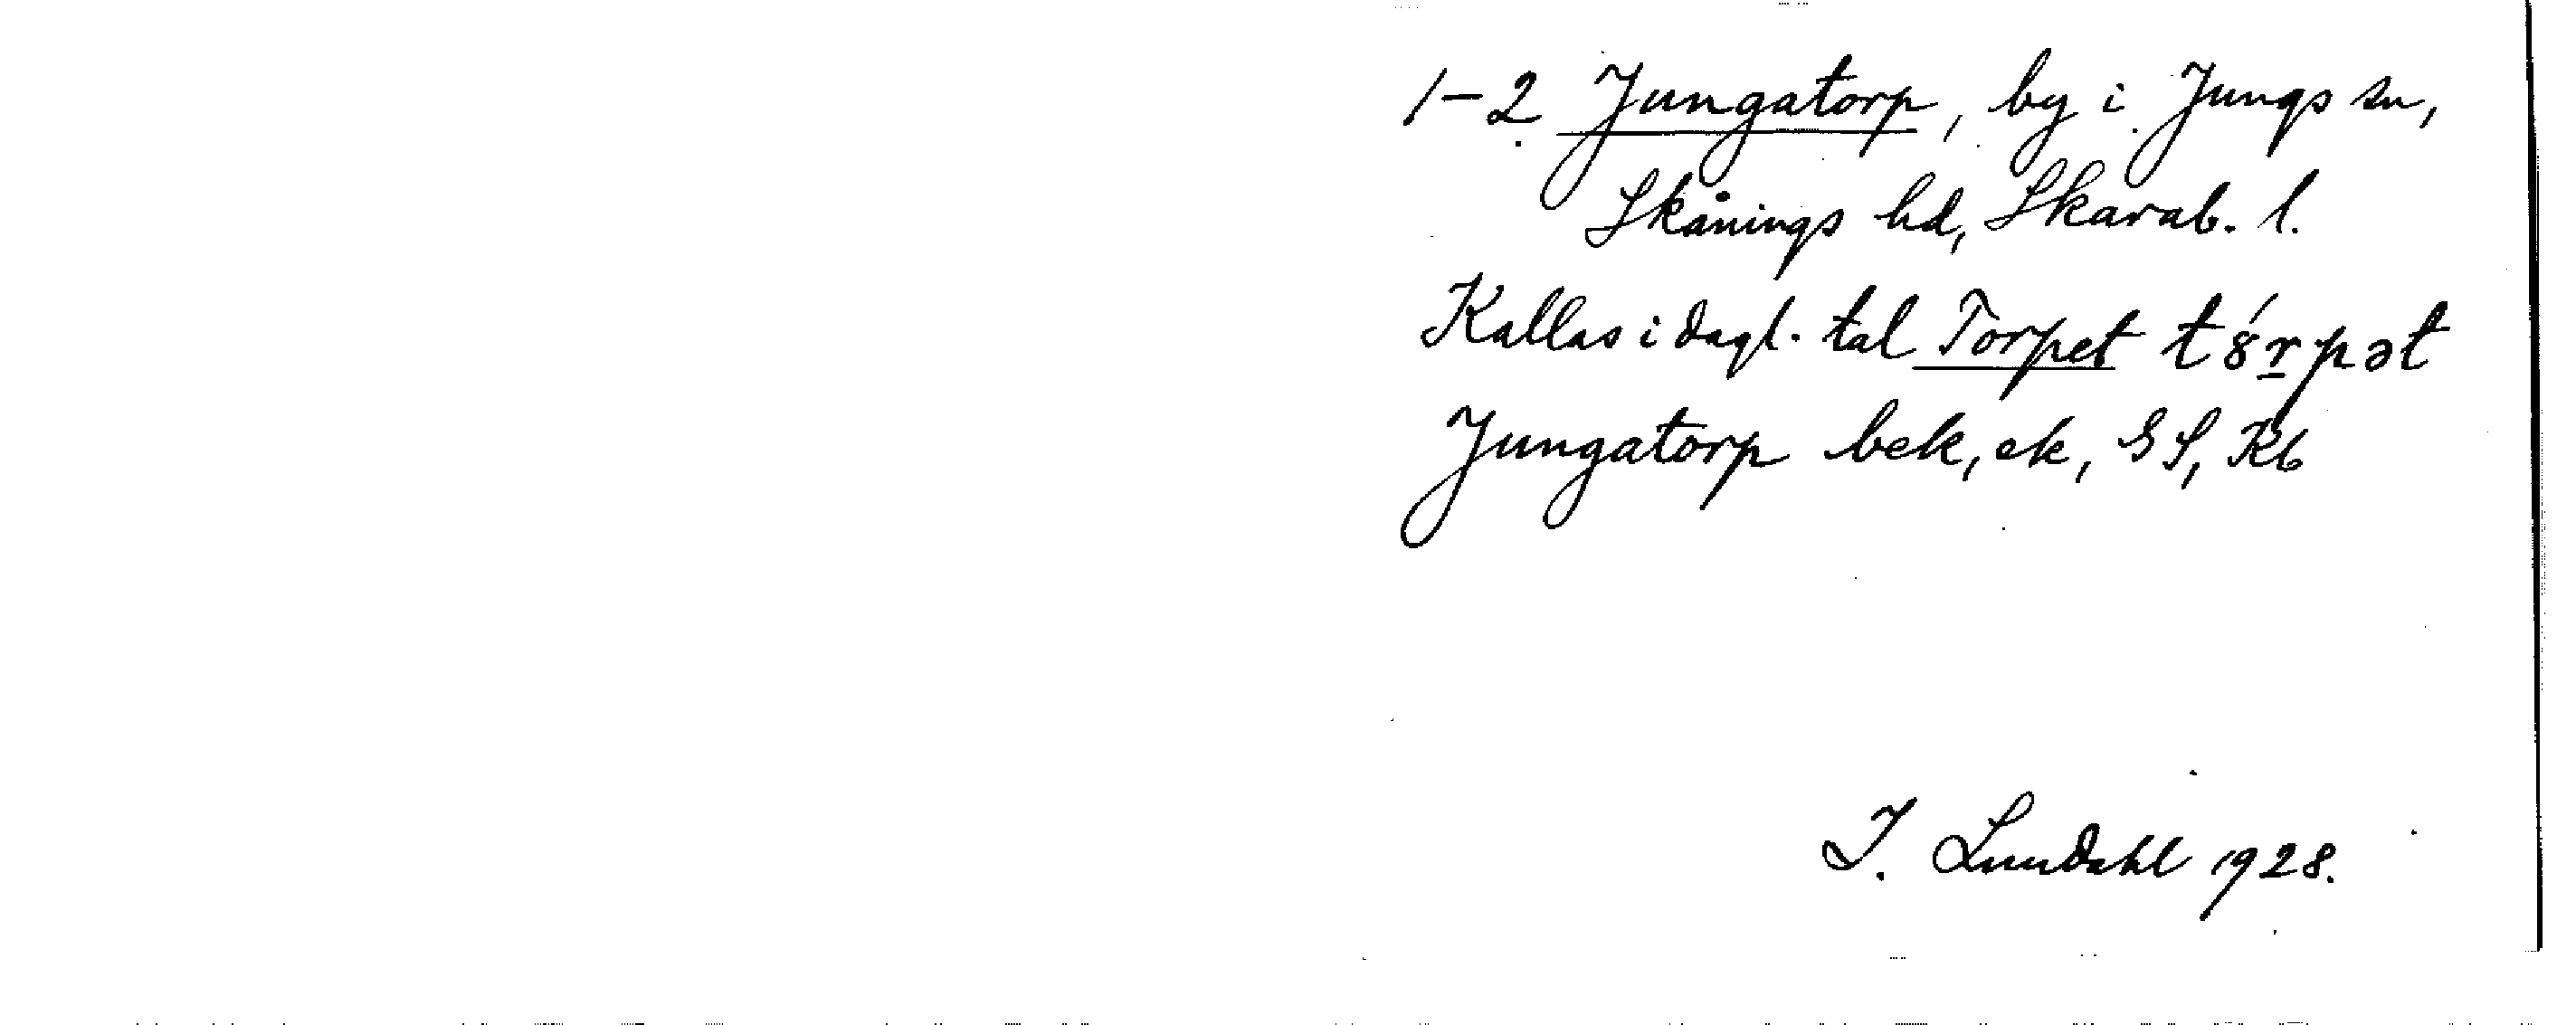 1-2 Jungatorp, by i Jungs sn,
Skånings hd, Skarab. l.
Kallas i dagl. tal Torpet t8́rpət
Jungatorp bek, ek, GS, Kb
I. Lundahl 1928.